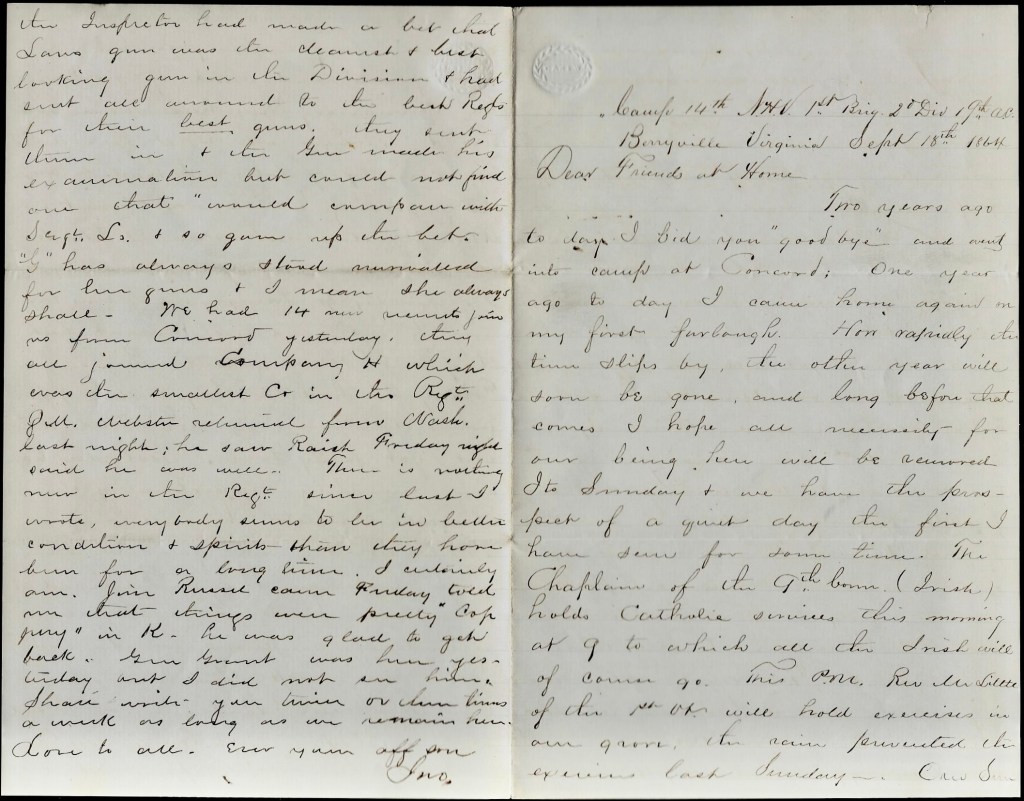 Camp 14th N.H.V. 1st Brig. 2d Div 19th A.C.
Berryville Virginia Sept 18th 1864
Dear Friends at Home
Two years ago
to day I bid you "good bye" and went
into camp at Concord; One year
ago to day I came home again on
my first furlough. How rapidly the
time slips by, the other year will
soon be gone, and long before that
comes I hope all necessity for
our being here will be removed
Its Sunday & we have the pros-
pect of a quiet day the first I
have seen for some time. The
Chaplain of the 9th Conn. (Irish)
holds Catholic services this morning
at 9 to which all the Irish will
of course go. This P.M. Rev Mr Little
of the 1st Vt. will hold exercises in
our grove, the rain prevented the
exercises last Sunday—.
the Inspector had made a bet that
Laws gun was the cleanest & best
looking gun in the Division & had
sent all around to the best Regts
for their best guns. they sent
them in & the Gen made his
examination but could not find
one that would compare with
Sergt. Ls. & so gave up the bet.
"G" has always stood unrivaled
for her guns & I mean she always
shall - We had 14 new recruits join
us from Concord yesterday. they
all joined Company H which
was the smallest Co in the Regt.
Webster returned from Wash.
last night; he saw Friday night
said he was well. There is nothing
new in the Regt. since last I
wrote, everybody seems to be in better
condition & spirits than they have
been for a long time. I certainly
am. Jim Russel came Friday told
me that things were pretty "Cop
pery" in K- he was glad to get
back. Gen Grant was here yes-
terday but I did not see him.
Shall write you twice or three times
a week as long as we remain here.
Love to all. Ever your aff son
Jno.